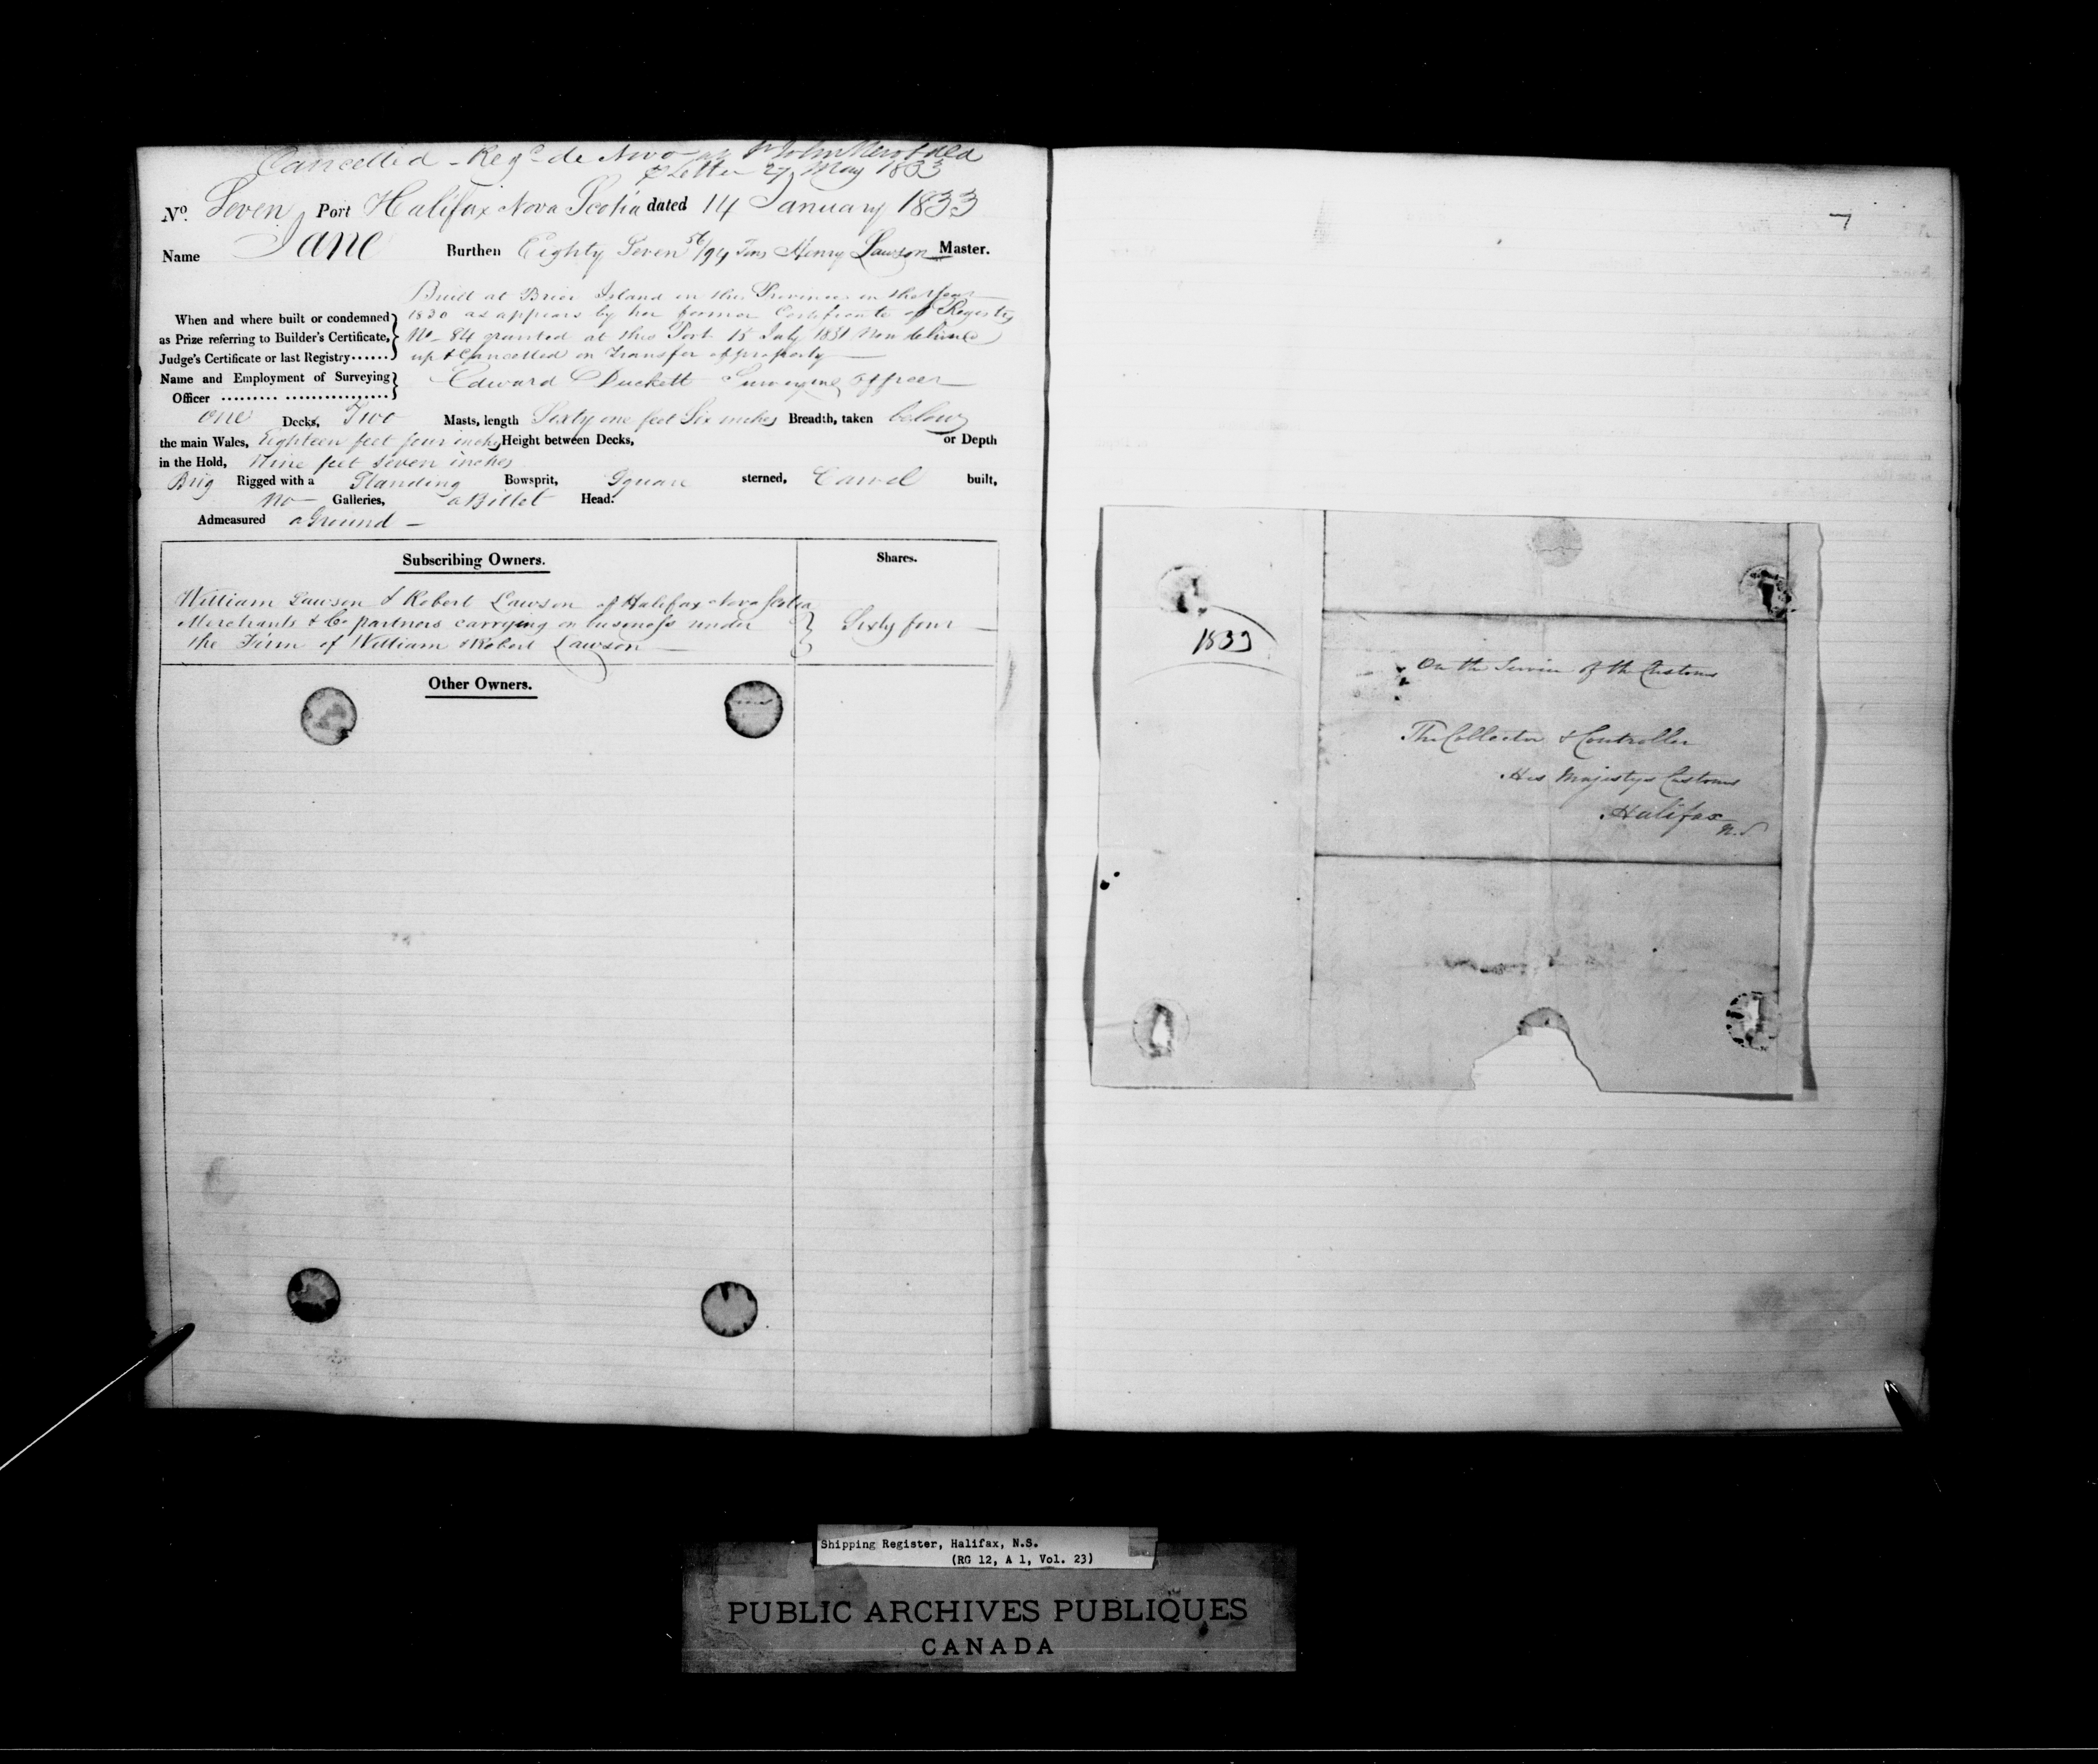 Cancelled - Regd. de Novo at St John Newfdld
P Letter 27 May 1833
No. Seven Port Halifax Nova Scotia dated 14 January 1833
Name Jane Burthen Eighty Seven 56/94 Tons Henry Lawson Master.
When and where built or condemned as Prize referring to Builder's Certificate, Judge's Certificate or last Registry......
Built at Brier Island in this Province in the Year
1830 as appears by her former Certificate of Registry
No. 84 granted at this Port 15 July 1831 Now delivered
up & Cancelled on transfer of property
Name and Employment of Surveying Officer ......... .................
Edward Duckett Surveying Officer
One Decks, Two Masts, length Sixty one feet Six inches Breadth, taken below
the main Wales, Eighteen feet four inches Height between Decks, or Depth
in the Hold, Nine feet Seven inches
Brig Rigged with a Standing Bowsprit, Square sterned, Carvel built,
No Galleries, a Billet Head.
Admeasured a Ground
Subscribing Owners. Shares.
William Lawson & Robert Lawson of Halifax Nova Scotia
Merchants & Co partners carrying on business under Sixty four
the Firm of William & Robert Lawson
Other Owners.
7
1833
On the Service of the Customs
The Collector & Controller
His Majestys Customs
Halifax
N.S
Shipping Register, Halifax, N.S.
(RG 12, A 1, Vol. 23)
PUBLIC ARCHIVES PUBLIQUES
CANADA